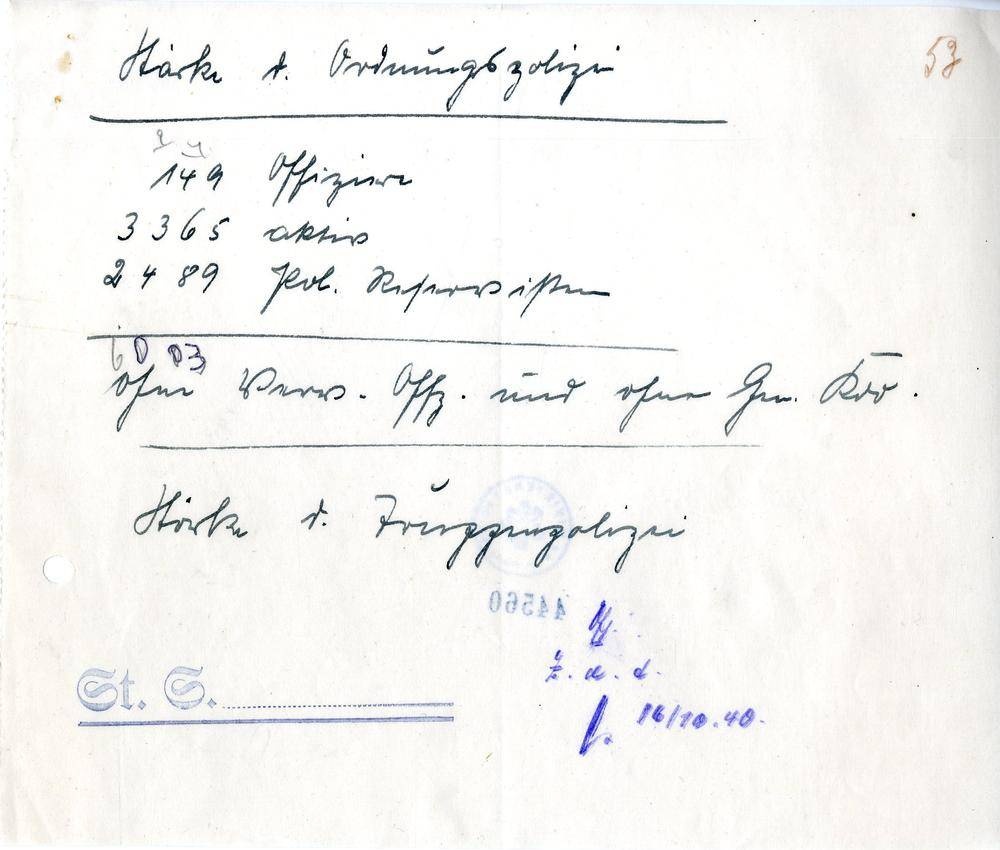 53
Stärke d. Ordnungspolizei
149 Offiziere
3365 aktiv
2489 Pol. Reservisten
6003
ohne Verw. Offz. und ohne Gen. Kdo.
Stärke d. Truppenpolizei
44560
Z. d. A.
16/10.40.
St. S.